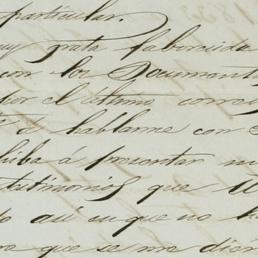 particular.
uy grata faborecida
con los Documentos
por el último correo
á hablarme con
hiba á presentar
testimonios que
así es que no
que se me